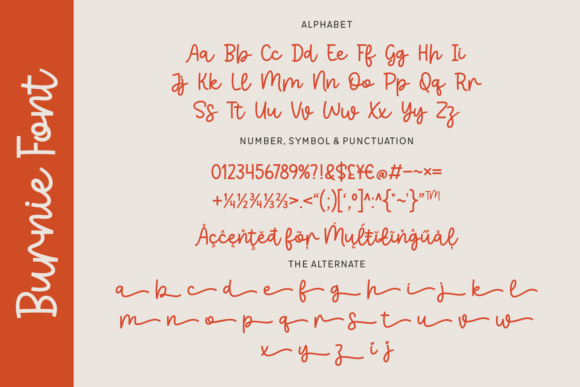 Burnie Font
ALPHABET
Aa Bb Cc Dd Ee Ff Gg Hh Ii
Jj Kk Ll Mm Nn Oo Pp Qq Rr
Ss Tt Uu Vv Ww Xx Yy Zz
NUMBER, SYMBOL & PUNCTUATION
0123456789%?!&$£¥€@#-–~×=
+¼½¾⅓⅔>.<“(;)[‘,°]^:^{*~'}”™
Åçčęņţěđ fõŗ Ṁųĺťıľıňğűąļ
THE ALTERNATE
a b c d e f g h i j k l
m n o p q r s t u v w
x y z i j